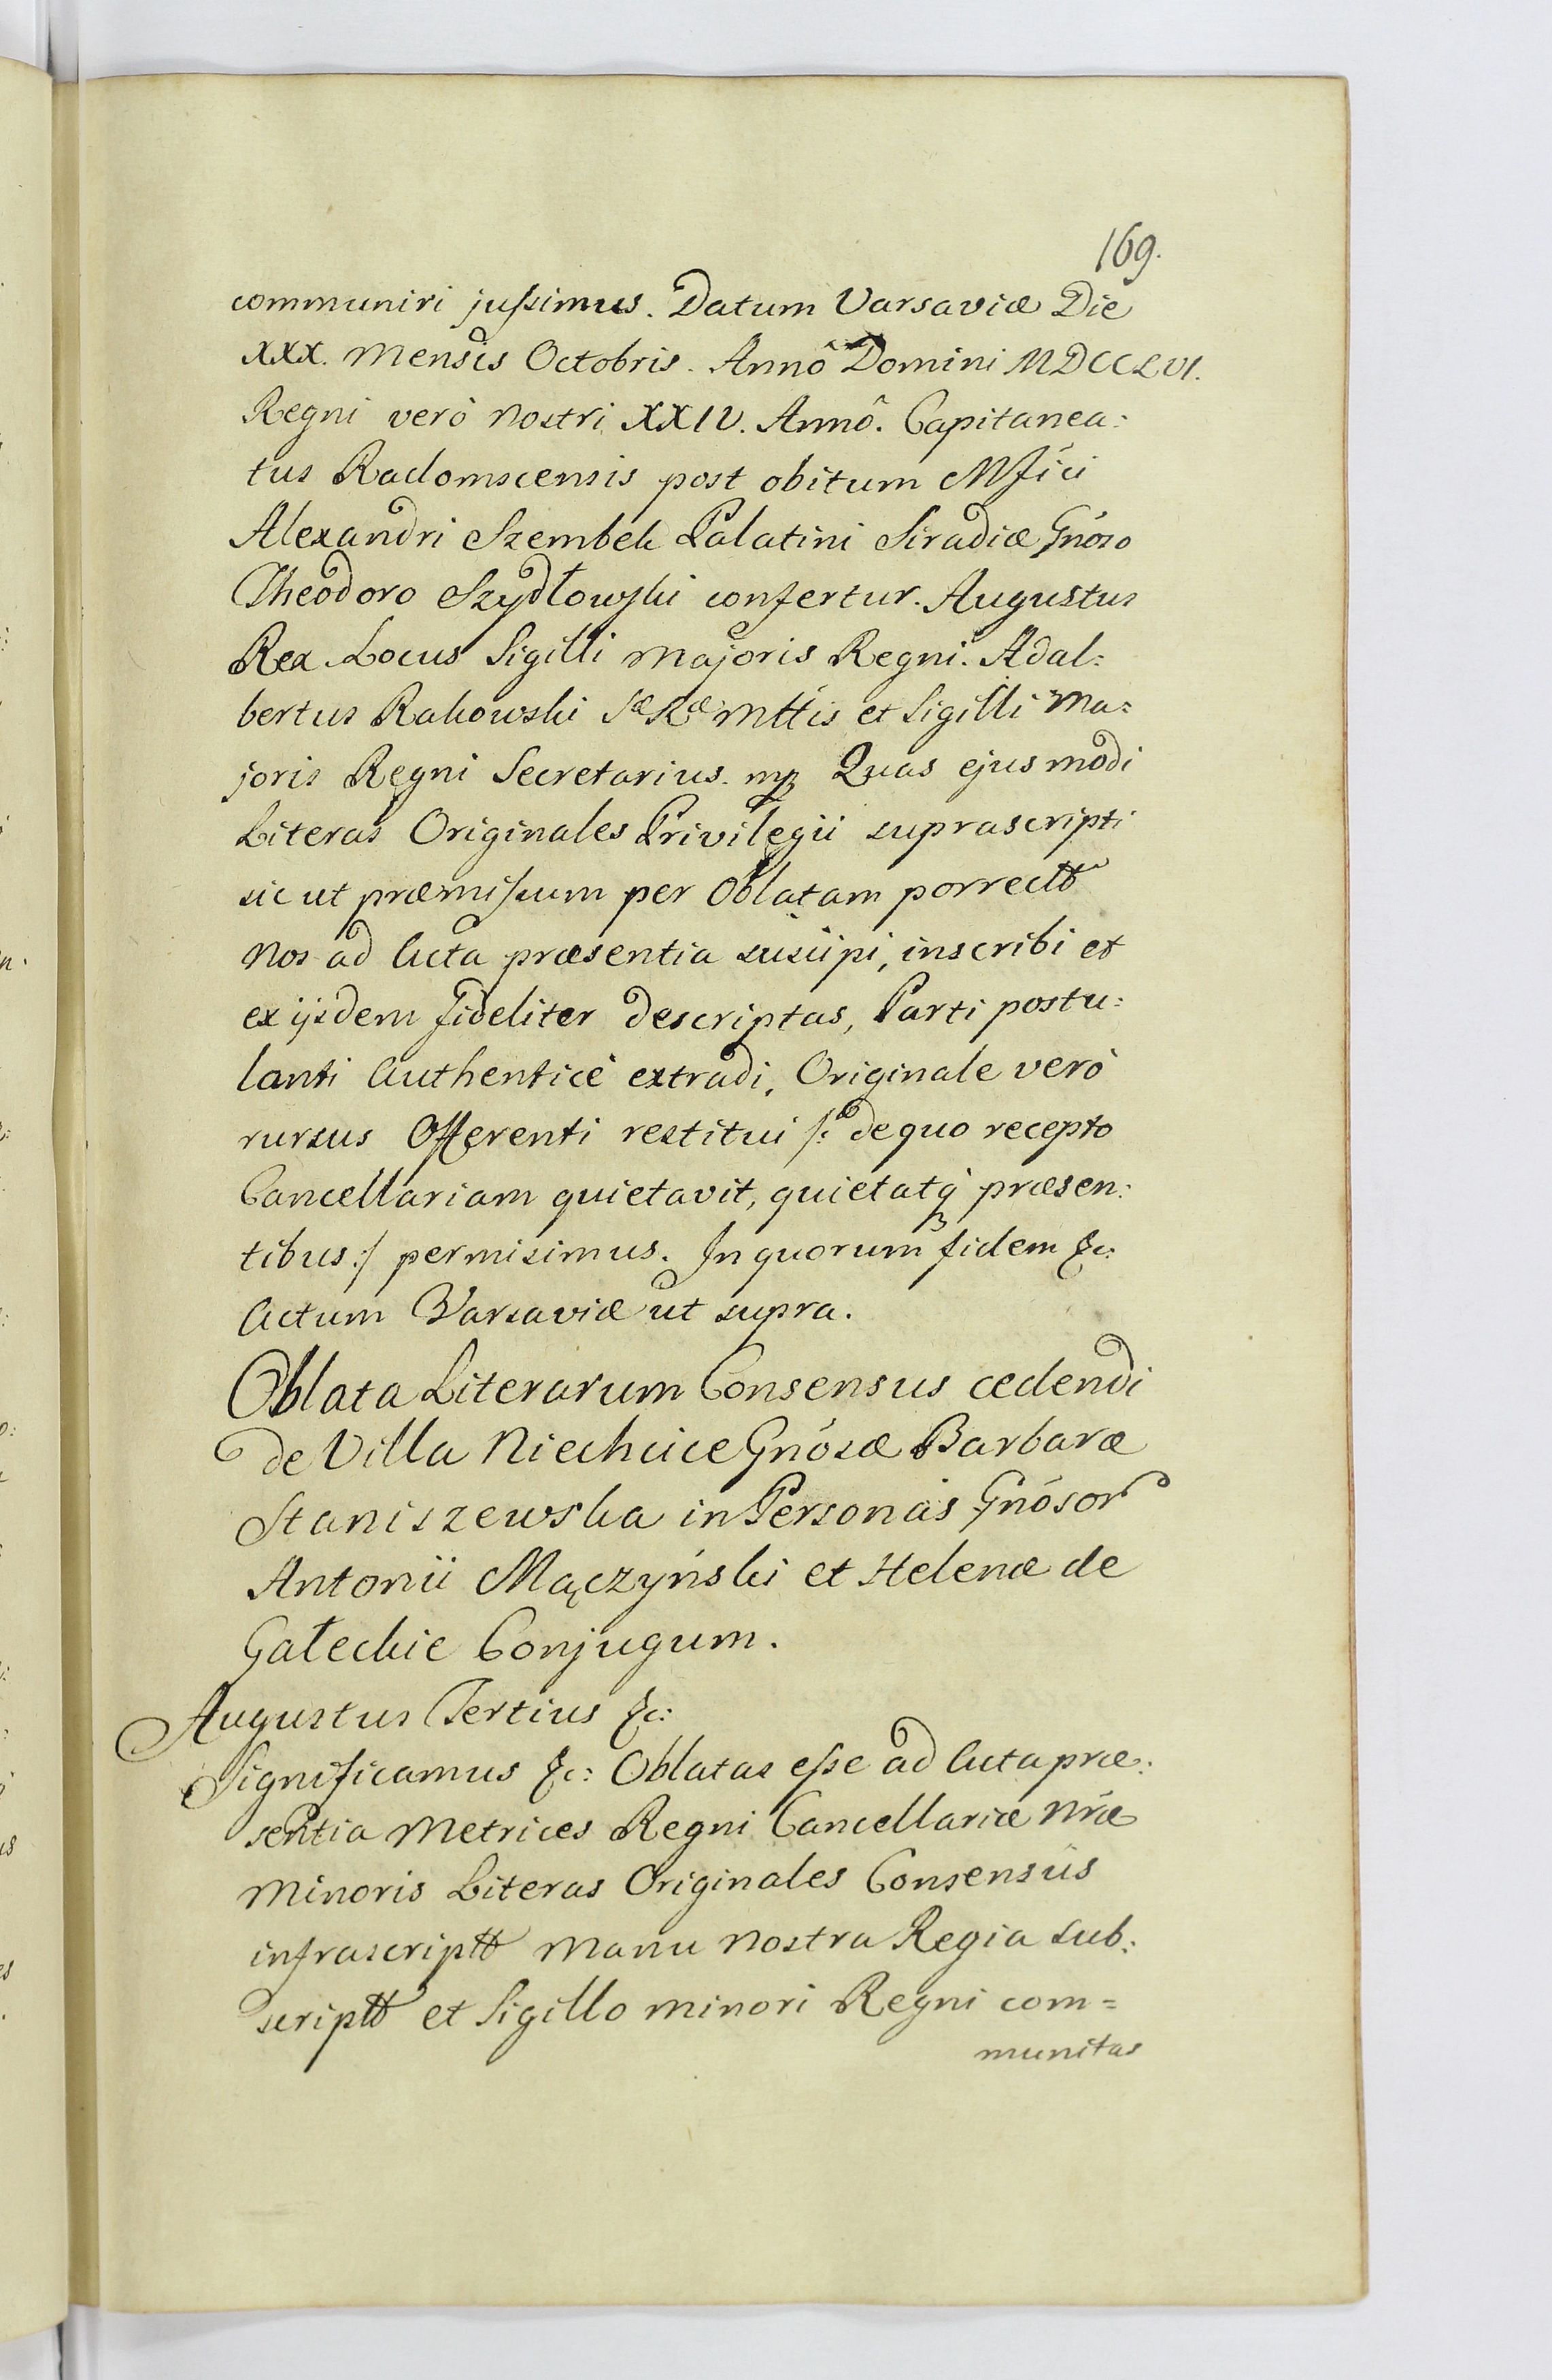 169.
communiri jussimus. Datum Varsaviæ Die
XXX. Mensis Octobris. Annô Domini MDCCLVI.
Regni verò Nostri XXIV. Annô. Capitanea:
tus Radomscensis post obitum Mfici
Alexandri Szembek Palatini Siradiæ Gnóso
Theodoro Szydłowski confertur. Augustus
Rex Locus Sigilli Majoris Regni. Adal:
bertus Rakowski Sæ Ræ Mttis et Sigilli Ma:
joris Regni Secretarius. mp Quas ejusmodi
Literas Originales Privilegii suprascripti
sic ut præmissum per Oblatam porrectt
Nos ad Acta præsentia suscipi, inscribi et
ex ijsdem fideliter descriptas, Parti postu:
lanti Authenticè extradi, Originale verò
rursus Offerenti restitui /: de quo recepto
Cancellariam quietavit, quietatq́ præsen:
tibus :/ permisimus. In quorum fidem &c:
Actum Varsaviæ ut supra.
Oblata Literarum Consensus cedendi
de Villa Niechcice Gnósæ Barbaræ
Staniszewska in Personas Gnósor
Antonii Mączyński et Helenæ de
Gałeckie Conjugum.
Augustus Tertius &c:
Significamus &c: Oblatas esse ad Acta præ:
sentia Metrices Regni Cancellariæ Nræ
Minoris Literas Originales Consensûs
infrascriptt Manu Nostra Regia sub:
scriptt et Sigillo minori Regni com=
munitas